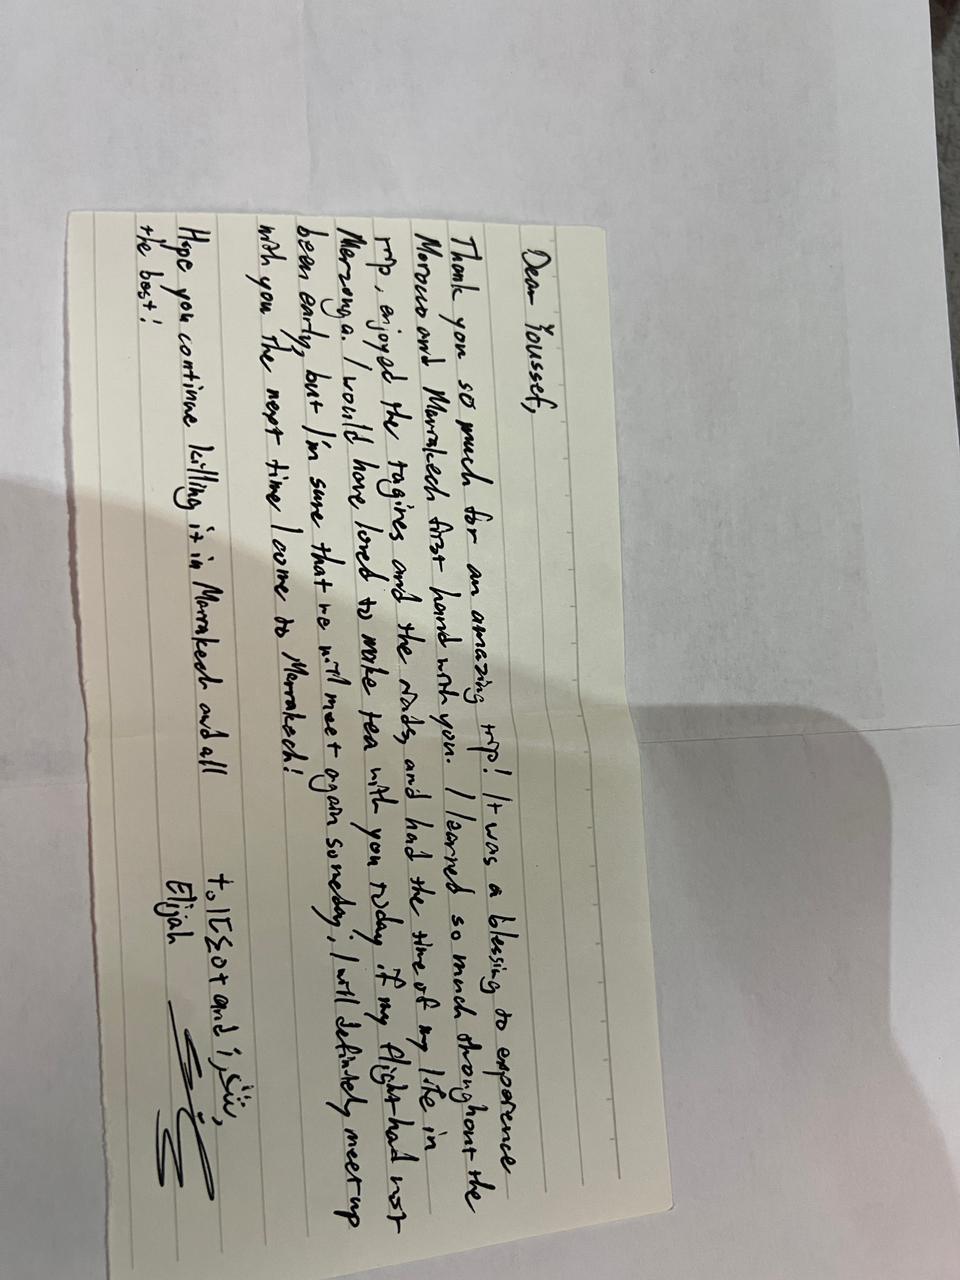 Dear Youssef,
Thank you so much for an amazing trip! It was a blessing to experence
Morocco and Marrakech first hand with you. I learned so much throughout the
trip, enjoyed the tagines and the riads, and had the time of my life in
Merzouga. I would have loved to make tea with you today if my flight had not
been early, but I'm sure that we will meet again someday. I will definitely meet up
with you the next time I come to Marrakech!
Hope you continue killing it in Marrakech and all
the best!
and شكرا,
Elijah